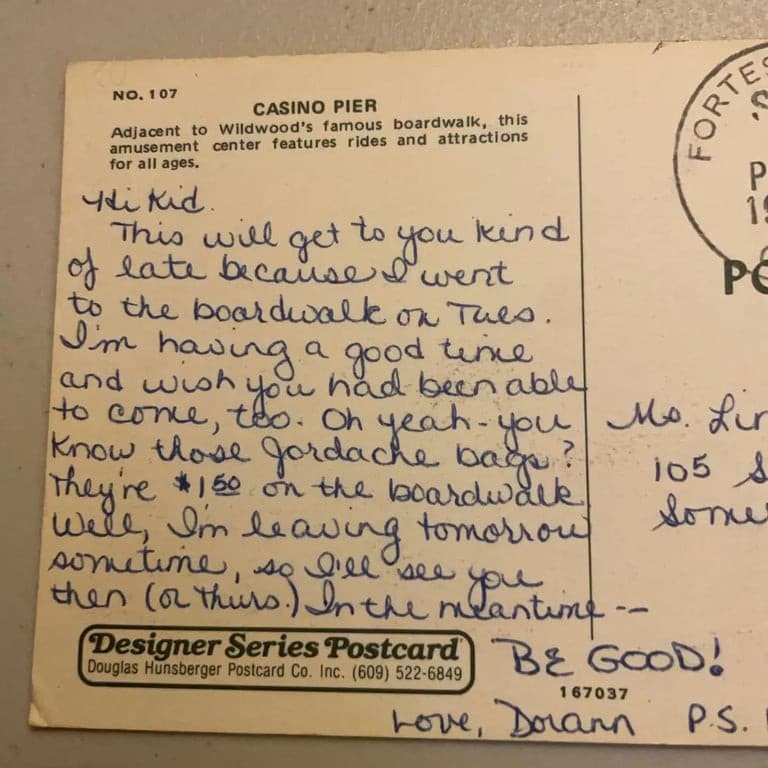 NO. 107
CASINO PIER
Adjacent to Wildwood's famous boardwalk, this
amusement center features rides and attractions
for all ages.
Hi Kid.
This will get to you kind
of late because I went
to the boardwalk on Tues.
I'm having a good time
and wish you had been able
to come, too. Oh yeah - you
know those Jordache bags?
They're $1.50 on the boardwalk
Well, I'm leaving tomorrow
sometime, so I'll see you
then (or Thurs.) In the meantime --
BE GOOD!
Love, Dorann P.S.
Designer Series Postcard
Douglas Hunsberger Postcard Co. Inc. (609) 522-6849
167037
FORTES
P
19
PO
Ms. Lin
105 S
Some